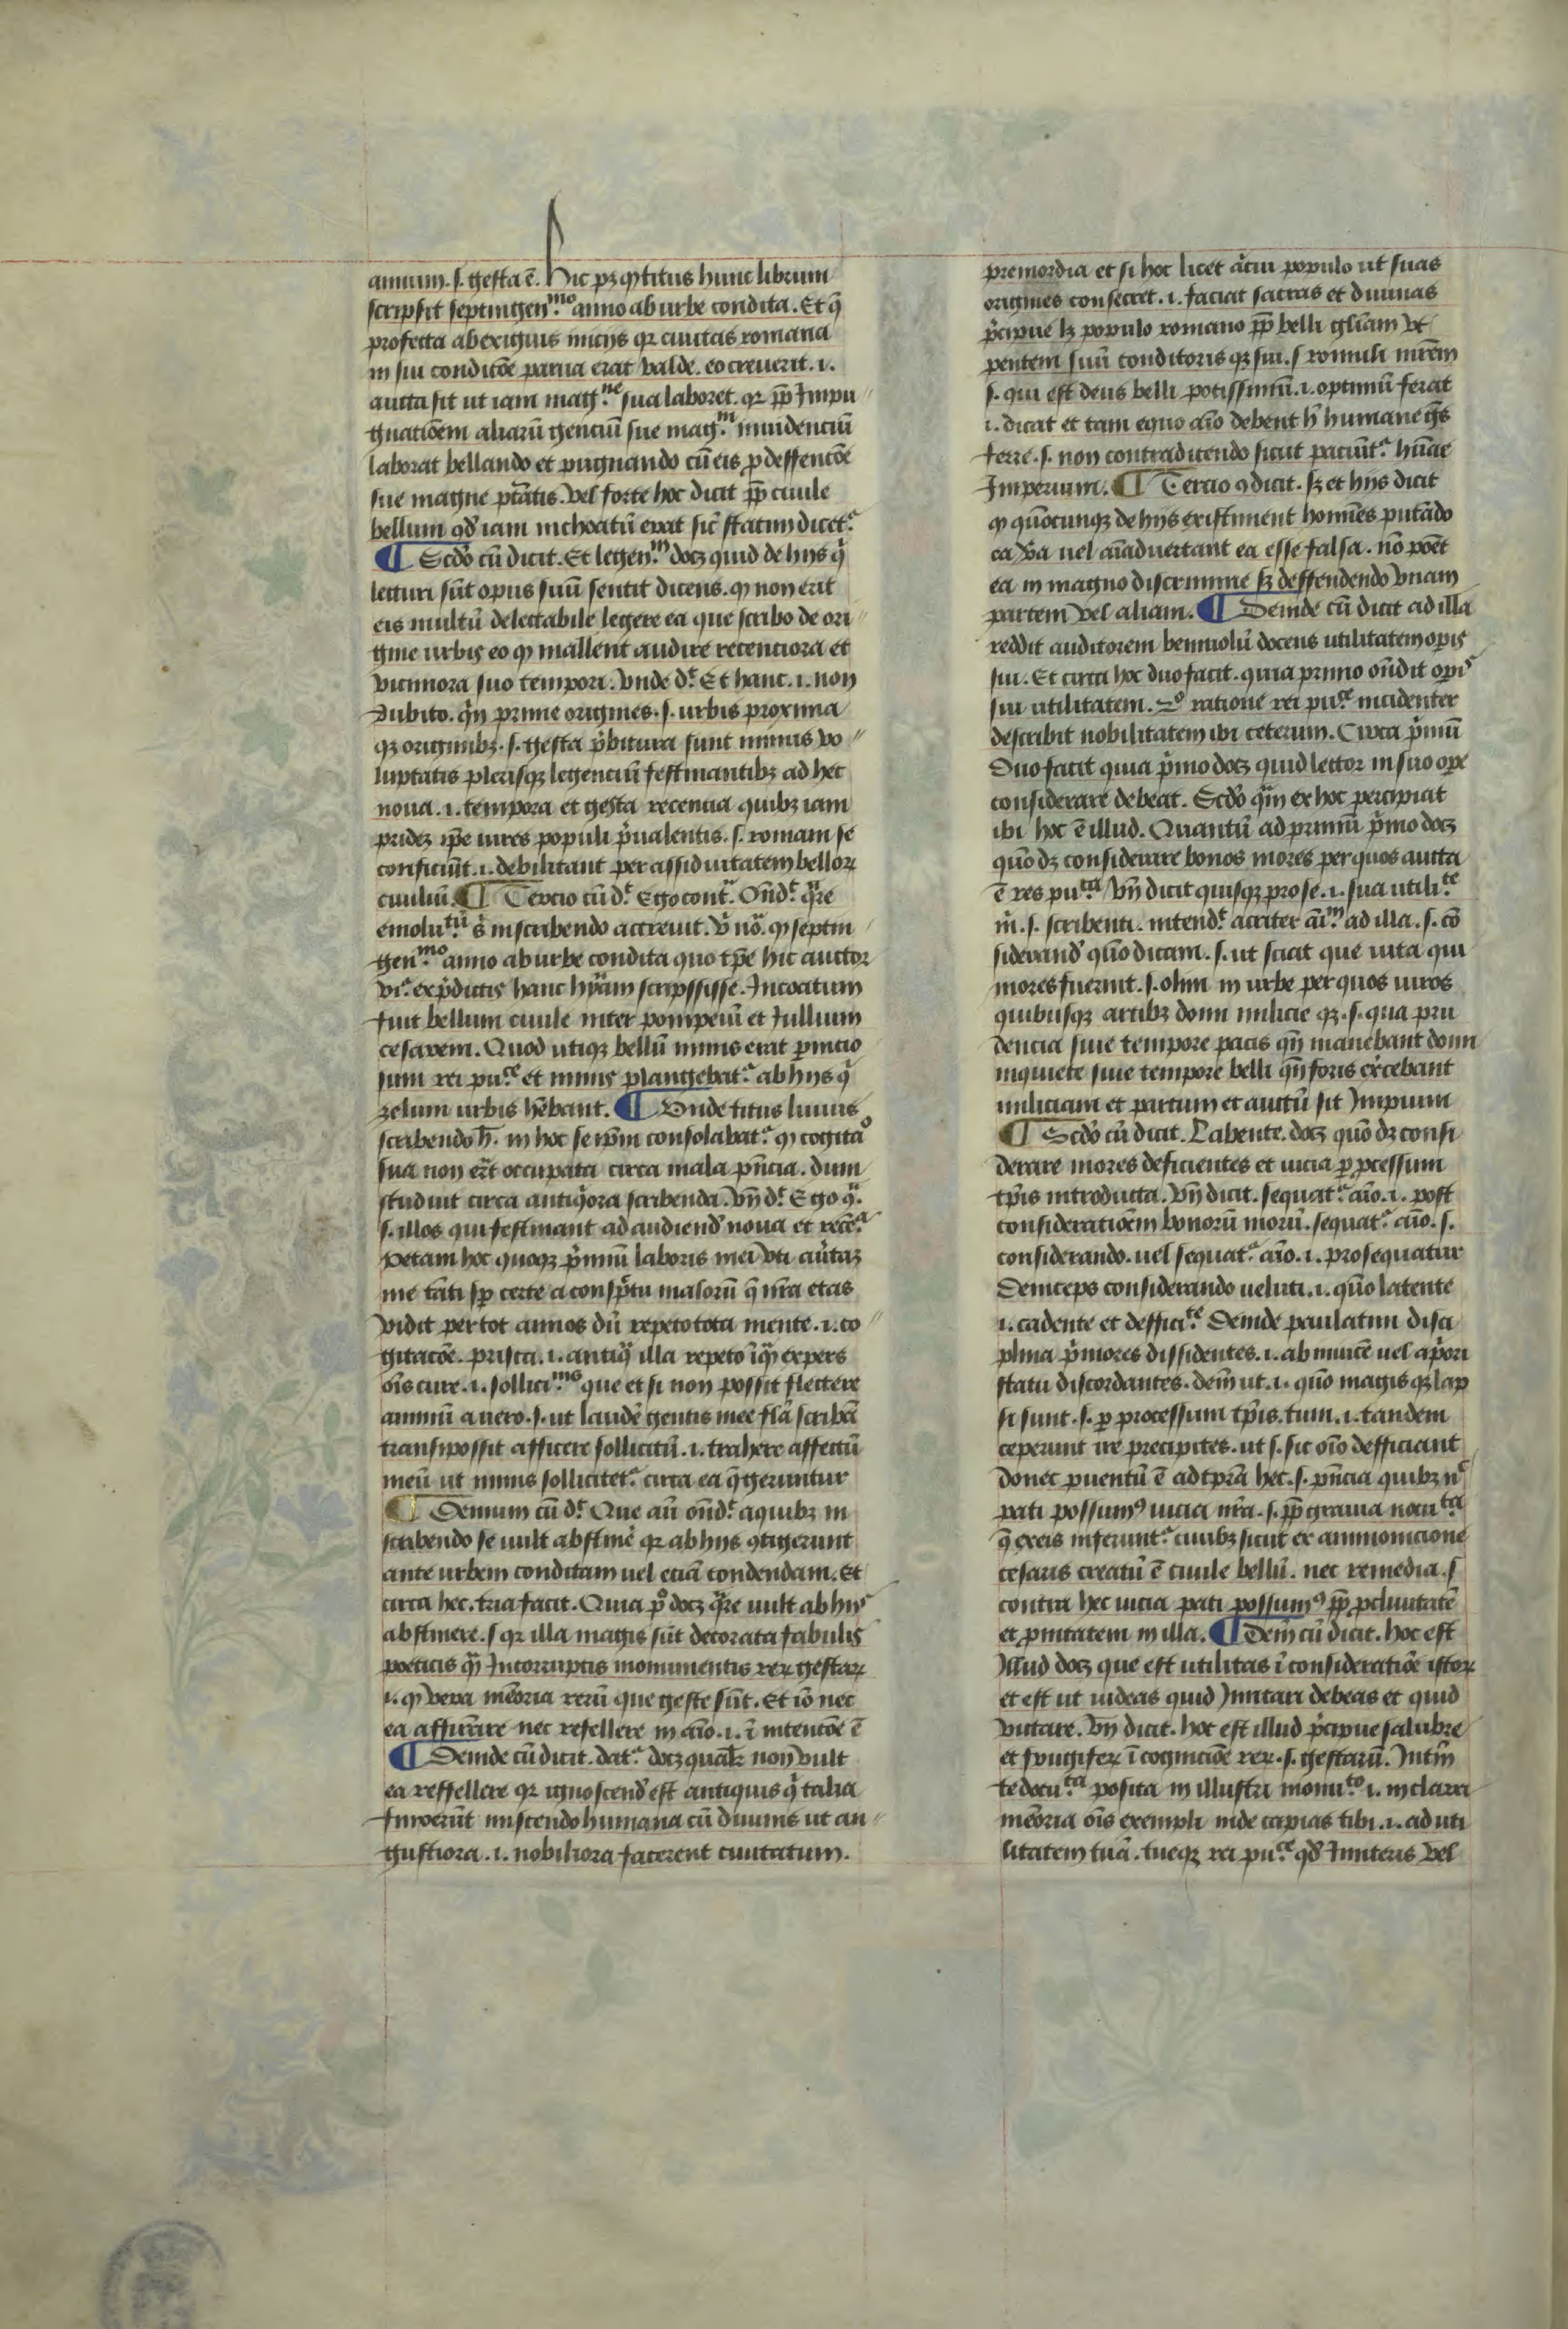 annum .s. gesta ē. Hic pꝫ ꝙ titus hunc librum
scripsit septingen.ᵐᵒ anno ab urbe condita. Et q̄
profecta ab exiguis inicijs qꝛ ciuitas romana
in sui conditōe parua erat valde. eo creuerit .i.
aucta sit ut iam mag.ⁿᵉ sua laboret. qꝛ ꝓp̄ Impu
gnatiōem aliarū genciū sue mag.ᵐ inuidenciū
laborat bellando et pugnando cū eis ꝓ deffencōe
sue magne ptātis. Vel forte hoc dicit ꝓp̄ ciuile
bellum qd̓ iam inchoatū erat sic̓ statim dicet.ᷣ
¶ Scd̓o cū dicit. Et legen.ᵐ docꝫ quid de hijs q̓
lecturi sūt opus suū sentit dicens. ꝙ non erit
eis multū delectabile legere ea que scribo de ori
gine urbis eo ꝙ mallent audire recenciora et
vicinora suo tempori. Vnde d.ᷣ Et hanc .i. non
Dubito. q̓n prime origines .s. urbis proxima
qꝫ originibꝫ .s. gesta p̓bitura sunt minus vo
luptatis plerisqꝫ legenciū festinantibꝫ ad hec
noua .i. tempora et gesta recencia quibꝫ iam
prideꝫ ip̄e uires populi p̓ualentis .s. romam se
conficiūt .i. debilitant per assiduitatem belloꝝ
ciuiliū. ¶ Tercio cū d.ᷣ Ego cont.ᵃ Ond̄.ᷣ q̓re
emolu.ᵗū s̓ in scribendo accreuit. V̓ nō. ꝙ septin
gen.ᵐᵒ anno ab urbe condita quo tp̄e hic auctor
vr̓. ex p̓dictis hanc hȳam scripssisse. Incoatum
fuit bellum ciuile inter pompeiū et Iullium
cesarem. Quod utiqꝫ bellū nimis erat ꝑnicio
sum rei pu.ᶜᵉ et nimis plangebat.ᷣ ab hijs q̓
zelum urbis hēbant. ¶ Vnde titus liuius
scribendo h̄. in hoc se ip̄m consolabat.ᷣ ꝙ cogitaͦ
sua non er̄t occupata circa mala pn̄cia. dum
studuit circa antiq̓ora scribenda. Vn̄ d.ᷣ Ego q.ᵃ
.s. illos qui festinant ad audiend̓ noua et recē.ᵃ
Petam hoc quoqꝫ p̓miū laboris mei vti au̓taꝫ
me tāti sꝑ certe a consp̓tu maloꝝ q̄ nr̄a etas
vidit per tot annos dū repeto tota mente .i. co
gitacōe. prisca .i. antiq̓ illa repeto īq̓m expers
oīs cure .i. sollici.ⁿⁱˢ que et si non possit flectere
animū a uero .s. ut laudē gentis mee flā scribā
transi possit afficere sollicitū .i. trahere affectū
meū ut nimis sollicitet.ᷣ circa ea q̄ geruntur
¶ Demum cū d.ᷣ Que aū ond̄.ᷣ a quibꝫ in
scribendo se uult abstine̓ qꝛ ab hijs ꝯtigerunt
ante urbem conditam uel eciā condendam. Et
circa hec. tria facit. Quia pͦ docꝫ q̓re uult ab hijs
abstinere .s. qꝛ illa magis sūt decorata fabulis
poeticis q̓m Incorruptis monumentis reꝝ gestaꝝ
.i. ꝙ vera mēoria rerū que geste sūt. Et iō nec
ea affirmare nec refellere in aīo .i. ī intencōe ē
¶ Deinde cū dicit. dat.ᷣ docꝫ qualr̄ non vult
ea reffellere qꝛ ignoscend̓ est antiquis q̓ talia
Inuoerūt miscendo humana cū diuinis ut an
gustiora .i. nobiliora facerent ciuitatum.
premordia et si hoc licet alicui populo ut suas
origines consecret .i. faciat sacras et diuinas
p̓cipue lꝫ populo romano ꝓp̄ belli gl̄iam vt
pentem suū conditoris qꝫ sui .s. romuli mr̄em
.s. qui est deus belli potissimū .i. optimū ferat
.i. dicat et tam equo aīo debent h̄ humane gn̄s
ferre .s. non contradicendo sicut paciūt.ᷣ hūae
Imperium. ¶ Tercio ꝯ dicit. sꝫ et hijs dicit
ꝙ quōcunqꝫ de hijs existiment homīes putādo
ea v̓a uel aīaduertant ea esse falsa. nō poēt
ea in magno discrimine sꝫ deffendendo vnam
partem vel aliam. ¶ Deinde cū dicit ad illa
reddit auditorem beniuolū docens utilitatem opis
sui. Et circa hoc duo facit. quia primo ond̄it opis
sui utilitatem. 2ͦ ratione rei pu.ᶜᵉ incidenter
describit nobilitatem ibi ceterum. Circa p̓mū
Duo facit quia p̓mo docꝫ quid lector in suo ope
considerare debeat. Scd̓o q̓m ex hoc percipiat
ibi hoc ē illud. Quantū ad primū p̓mo docꝫ
quō dꝫ considerare bonos mores per quos aucta
ē res pu.ᶜᵃ Vn̄ dicit quisqꝫ pro se .i. sua utili.ᵗᵉ
m̓ .s. scribenti. intend.ᷣ acriter aī.ᵐ ad illa .s. cō
siderand̓ quō dicam .s. ut sciat que uita qui
mores fuerint .s. olim in urbe per quos uiros
quibusqꝫ artibꝫ domi milicie qꝫ .s. qua pru
dencia siue tempore pacis qn̄ manebant domi
inquiete siue tempore belli qn̄ foris exc̓ebant
miliciam et partum et auctū sit Impium
¶ Scd̓o cū dicit. Labente. docꝫ quō dꝫ consi
derare mores deficientes et uicia ꝑ ꝓcessum
tp̄is introducta. Vn̄ dicit. sequat.ᷣ aīo .i. post
consideratiōem bonorū morū. sequat.ᷣ aīo .s.
considerando. uel sequat.ᷣ aīo .i. prosequatur
Deinceps considerando ueluti .i. quō latente
.i. cadente et deffici.ᵗᵉ Deinde paulatim disci
plina p̓mores dissidentes .i. ab inuicē uel a p̓ori
statu discordantes. dein̄ ut .i. quō magis qꝫ lap
si sunt .s. ꝑ processum tp̄is. tum .i. tandem
ceperunt ire precipites. ut .s. sic oīo defficiant
donec ꝑuentū ē ad tp̄ra hec .s. pn̄cia quibꝫ nͨ
pati possumꝰ uicia nr̄a .s. ꝓp̄ grauia nocu.ᵗᵃ
q̄ ex eis inferunt.ᷣ ciuibꝫ sicut ex ammonicione
cesaris creatū ē ciuile bellū. nec remedia .s.
contra hec uicia pati possumꝰ ꝓp̄ ꝓcliuitatē
et ꝓnitatem in illa. ¶ Dein̄ cū dicit. hoc est
Illud docꝫ que est utilitas ī consideratiōe istoꝝ
et est ut uideas quid Imitari debeas et quid
vitare. Vn̄ dicit. hoc est illud p̓cipue salubre
et frugiferꝝ ī cognicōe reꝝ .s. gestarū. Intm̄
te docu.ᵗᵃ posita in illustri monu.ᵗᵒ .i. in clara
mēoria oīs exempli inde capias tibi .i. ad uti
litatem tuā. tueqꝫ rei pu.ᶜᵉ qd̓ Imiteris vel